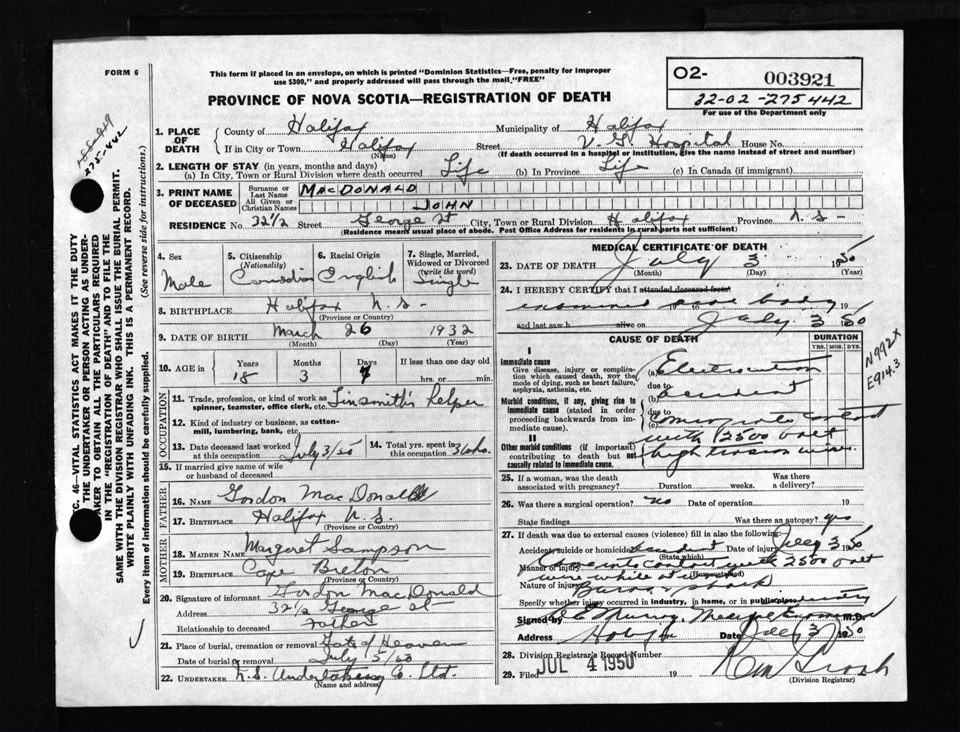 FORM 6
This form if placed in an envelope, on which is printed "Dominion Statistics—Free, penalty for improper
use $300," and properly addressed will pass through the mail, "FREE"
PROVINCE OF NOVA SCOTIA—REGISTRATION OF DEATH
O2- 003921
32-02-275442
For use of the Department only
275-442
SEC. 46—VITAL STATISTICS ACT MAKES IT THE DUTY
OF THE UNDERTAKER OR PERSON ACTING AS UNDER-
TAKER TO OBTAIN ALL THE PARTICULARS REQUIRED
IN THE "REGISTRATION OF DEATH" AND TO FILE THE
SAME WITH THE DIVISION REGISTRAR WHO SHALL ISSUE THE BURIAL PERMIT.
WRITE PLAINLY WITH UNFADING INK. THIS IS A PERMANENT RECORD.
Every item of information should be carefully supplied. (See reverse side for instructions.)
1. PLACE OF DEATH
County of Halifax Municipality of Halifax
If in City or Town Halifax Street V. G. Hospital House No.
(Name) (If death occurred in a hospital or institution, give the name instead of street and number)
2. LENGTH OF STAY (in years, months and days)
(a) In City, Town or Rural Division where death occurred Life (b) In Province Life (c) In Canada (if immigrant)
3. PRINT NAME OF DECEASED
Surname or Last Name MACDONALD
All Given or Christian Names JOHN
RESIDENCE No. 32 1/2 Street George St City, Town or Rural Division Halifax Province N.S-
(Residence means usual place of abode. Post Office Address for residents in rural parts not sufficient)
4. Sex Male
5. Citizenship (Nationality) Canadian
6. Racial Origin English
7. Single, Married, Widowed or Divorced (write the word) Single
8. BIRTHPLACE Halifax N.S-
(Province or Country)
9. DATE OF BIRTH March 26 1932
(Month) (Day) (Year)
10. AGE in Years Months Days If less than one day old
18 3 7 hrs. or min.
OCCUPATION
11. Trade, profession, or kind of work as spinner, teamster, office clerk, etc. Tinsmith's helper
12. Kind of industry or business, as cotton-mill, lumbering, bank, etc.
13. Date deceased last worked at this occupation July 3/50
14. Total yrs. spent in this occupation 3
15. If married give name of wife or husband of deceased
FATHER
16. Name Gordon MacDonald
17. Birthplace Halifax N.S.
(Province or Country)
MOTHER
18. MAIDEN NAME Margaret Sampson
19. Birthplace Cape Breton
(Province or Country)
20. Signature of informant Gordon MacDonald
Address 32 1/2 George St-
Relationship to deceased Father
21. Place of burial, cremation or removal Gate of Heaven
Date of burial or removal July 5/
22. UNDERTAKER N.S. Undertaking Co. Ltd.
(Name and address)
MEDICAL CERTIFICATE OF DEATH
23. DATE OF DEATH July 3 1950
(Month) (Day) (Year)
24. I HEREBY CERTIFY that I attended deceased from
examined body 19
and last saw h alive on July 3 50
CAUSE OF DEATH DURATION
YRS. MOS. DYS.
I
Immediate cause
Give disease, injury or complication which caused death, not the mode of dying, such as heart failure, asphyxia, asthenia, etc.
(a) Electrocution
due to
Morbid conditions, if any, giving rise to immediate cause (stated in order proceeding backwards from immediate cause).
(b) accident
due to
(c) Came into contact
II
Other morbid conditions (if important) contributing to death but not causally related to immediate cause.
with (2500 volt
high tension wire.
N992X
E914.3
25. If a woman, was the death associated with pregnancy? Duration weeks. Was there a delivery?
26. Was there a surgical operation? no Date of operation 19
State findings Was there an autopsy? yes
27. If death was due to external causes (violence) fill in also the following:
Accident, suicide or homicide Accident Date of injury July 3 1950
(State which)
Manner of injury Came into contact with 2500 volt
wire while at work
Nature of injury Burns & shock
Specify whether injury occurred in industry, in home, or in public place industry
Signed by Murray, Medical Examiner M.D.
Address Halifax Date July 3 1950
28. Division Registrar's Record Number
29. Filed JUL 4 1950 19
(Division Registrar)